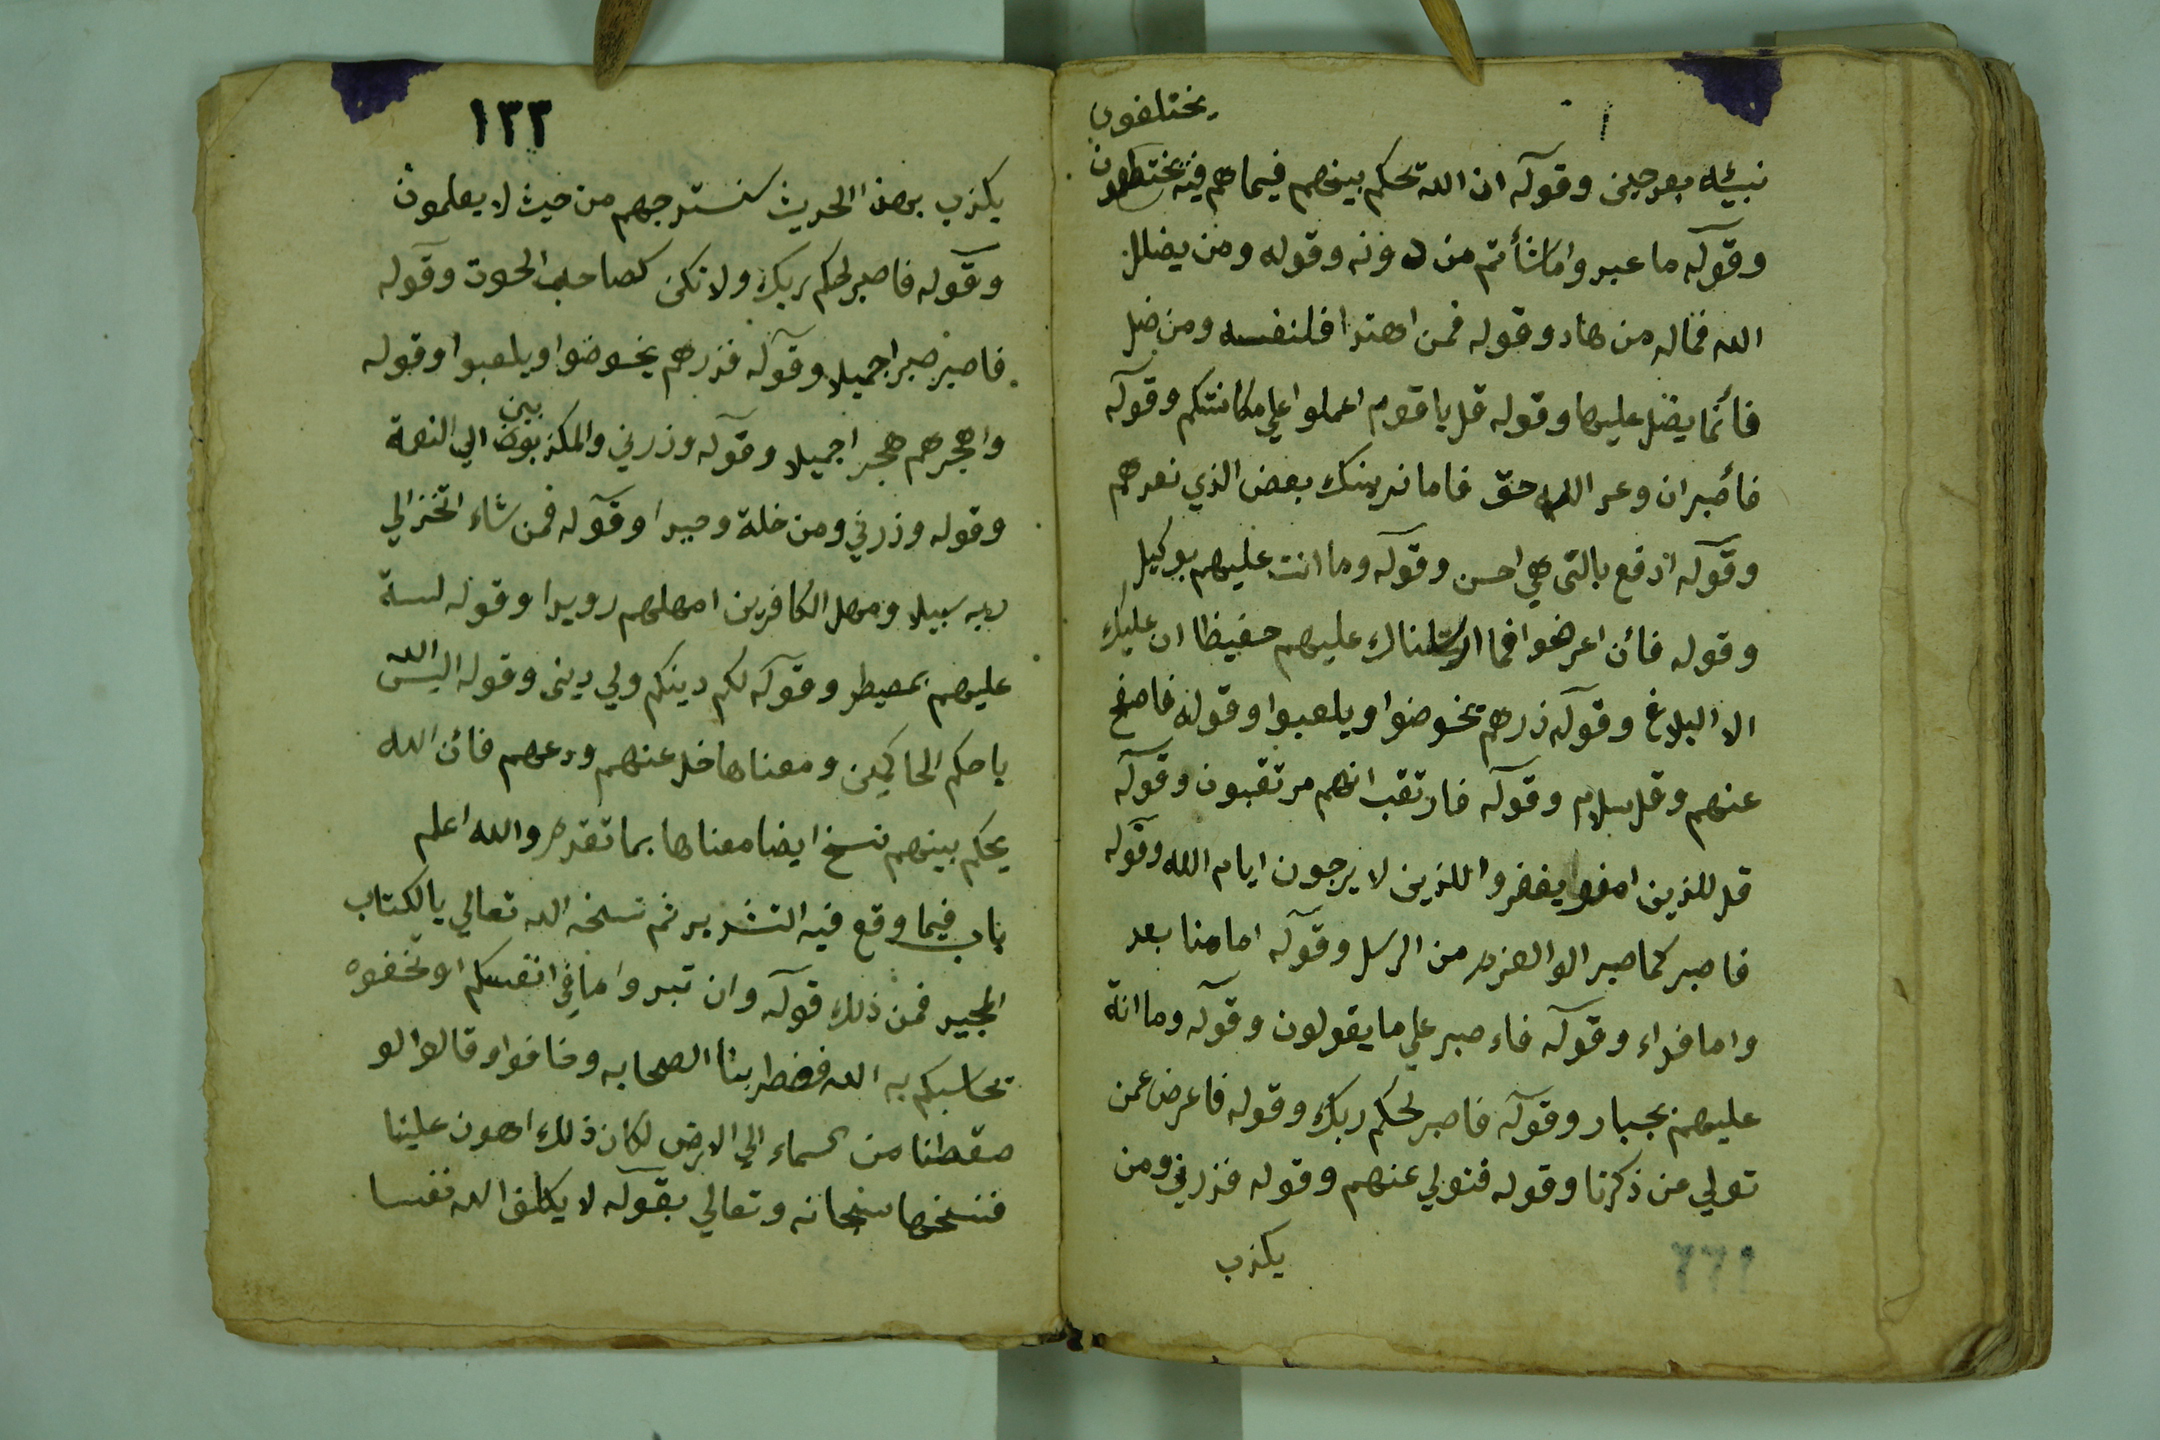 يختلفون
نبيئه بعد حين وقوله ان الله تحكم بينهم فيما هم فيه
وقوله ما عبدوا ماشأتم من دونه وقوله ومن يضلل
الله فماله من هاد وقوله فمن اهتدا فلنفسه ومن ضل
فأنما يضل عليها وقوله قل يا قوم اعملوا علي مكانتكم وقوله
فأصبر ان وعد الله حق فاما نرينك بعض الذي نعدهم
وقوله ادفع بالتى هي احسن وقوله وما انت عليهم بوكيل
وقوله فأن اعرضوا فما ارسلناك عليهم حفيظا ان عليك
الا البلاغ وقوله ذرهم يخوضوا ويلعبوا وقوله فاصفح
عنهم وقل سلام وقوله فارتقب انهم مرتقبون وقوله
قل للذين امنوا يغفروا للذين لا يرجون ايام الله وقوله
فاصبر كما صبر الوا العزم من الرسل وقوله امامنا بعد
واما فداء وقوله فاء صبر علي ما يقولون وقوله وما انة
عليهم بجبار وقوله فاصبر لحكم ربك وقوله فاعرض عمن
تولي عن ذكرنا وقوله فتولي عنهم وقوله فذرني ومن
يكذب
١٣٣
يكذب بهذا الحديث سنستدرجهم من حيث لا يعلمون
وقوله فاصبر لحكم ربك ولا تكن كصاحب الحوت وقوله
فاصبر صبرا جميلا وقوله فذرهم يخوضوا ويلعبوا وقوله
واهجرهم هجرا جميلا وقوله وذرني والمكذبين الي النعمة
وقوله وذرني ومن خلة وحيدا وقوله فمن شاء اتخذ الي
ربه سبيلا ومهل الكافرين امهلهم رويدا وقوله لسة
عليهم بمصيطر وقوله لكم دينكم ولي دينى وقوله اليس الله
باحكم الحاكمين ومعناها خل عنهم ودعهم فائن الله
يحكم بينهم نسخ ايضا معناها بما تقدم والله اعلم
باب فيما وقع فيه التشديد ثم نسخه الله تعالي بالكتاب
المجيد فمن ذلك قوله وان تبدوا ما في انفسكم او تخفوه
تحاسبكم به الله فضطربتا الصحابه وخافوا وقالوا لو
صقطنا من السماء الي الارض لكان ذلك اهون علينا
فنسخها سبحانه وتعالي بقوله لا يكلف الله نفسا